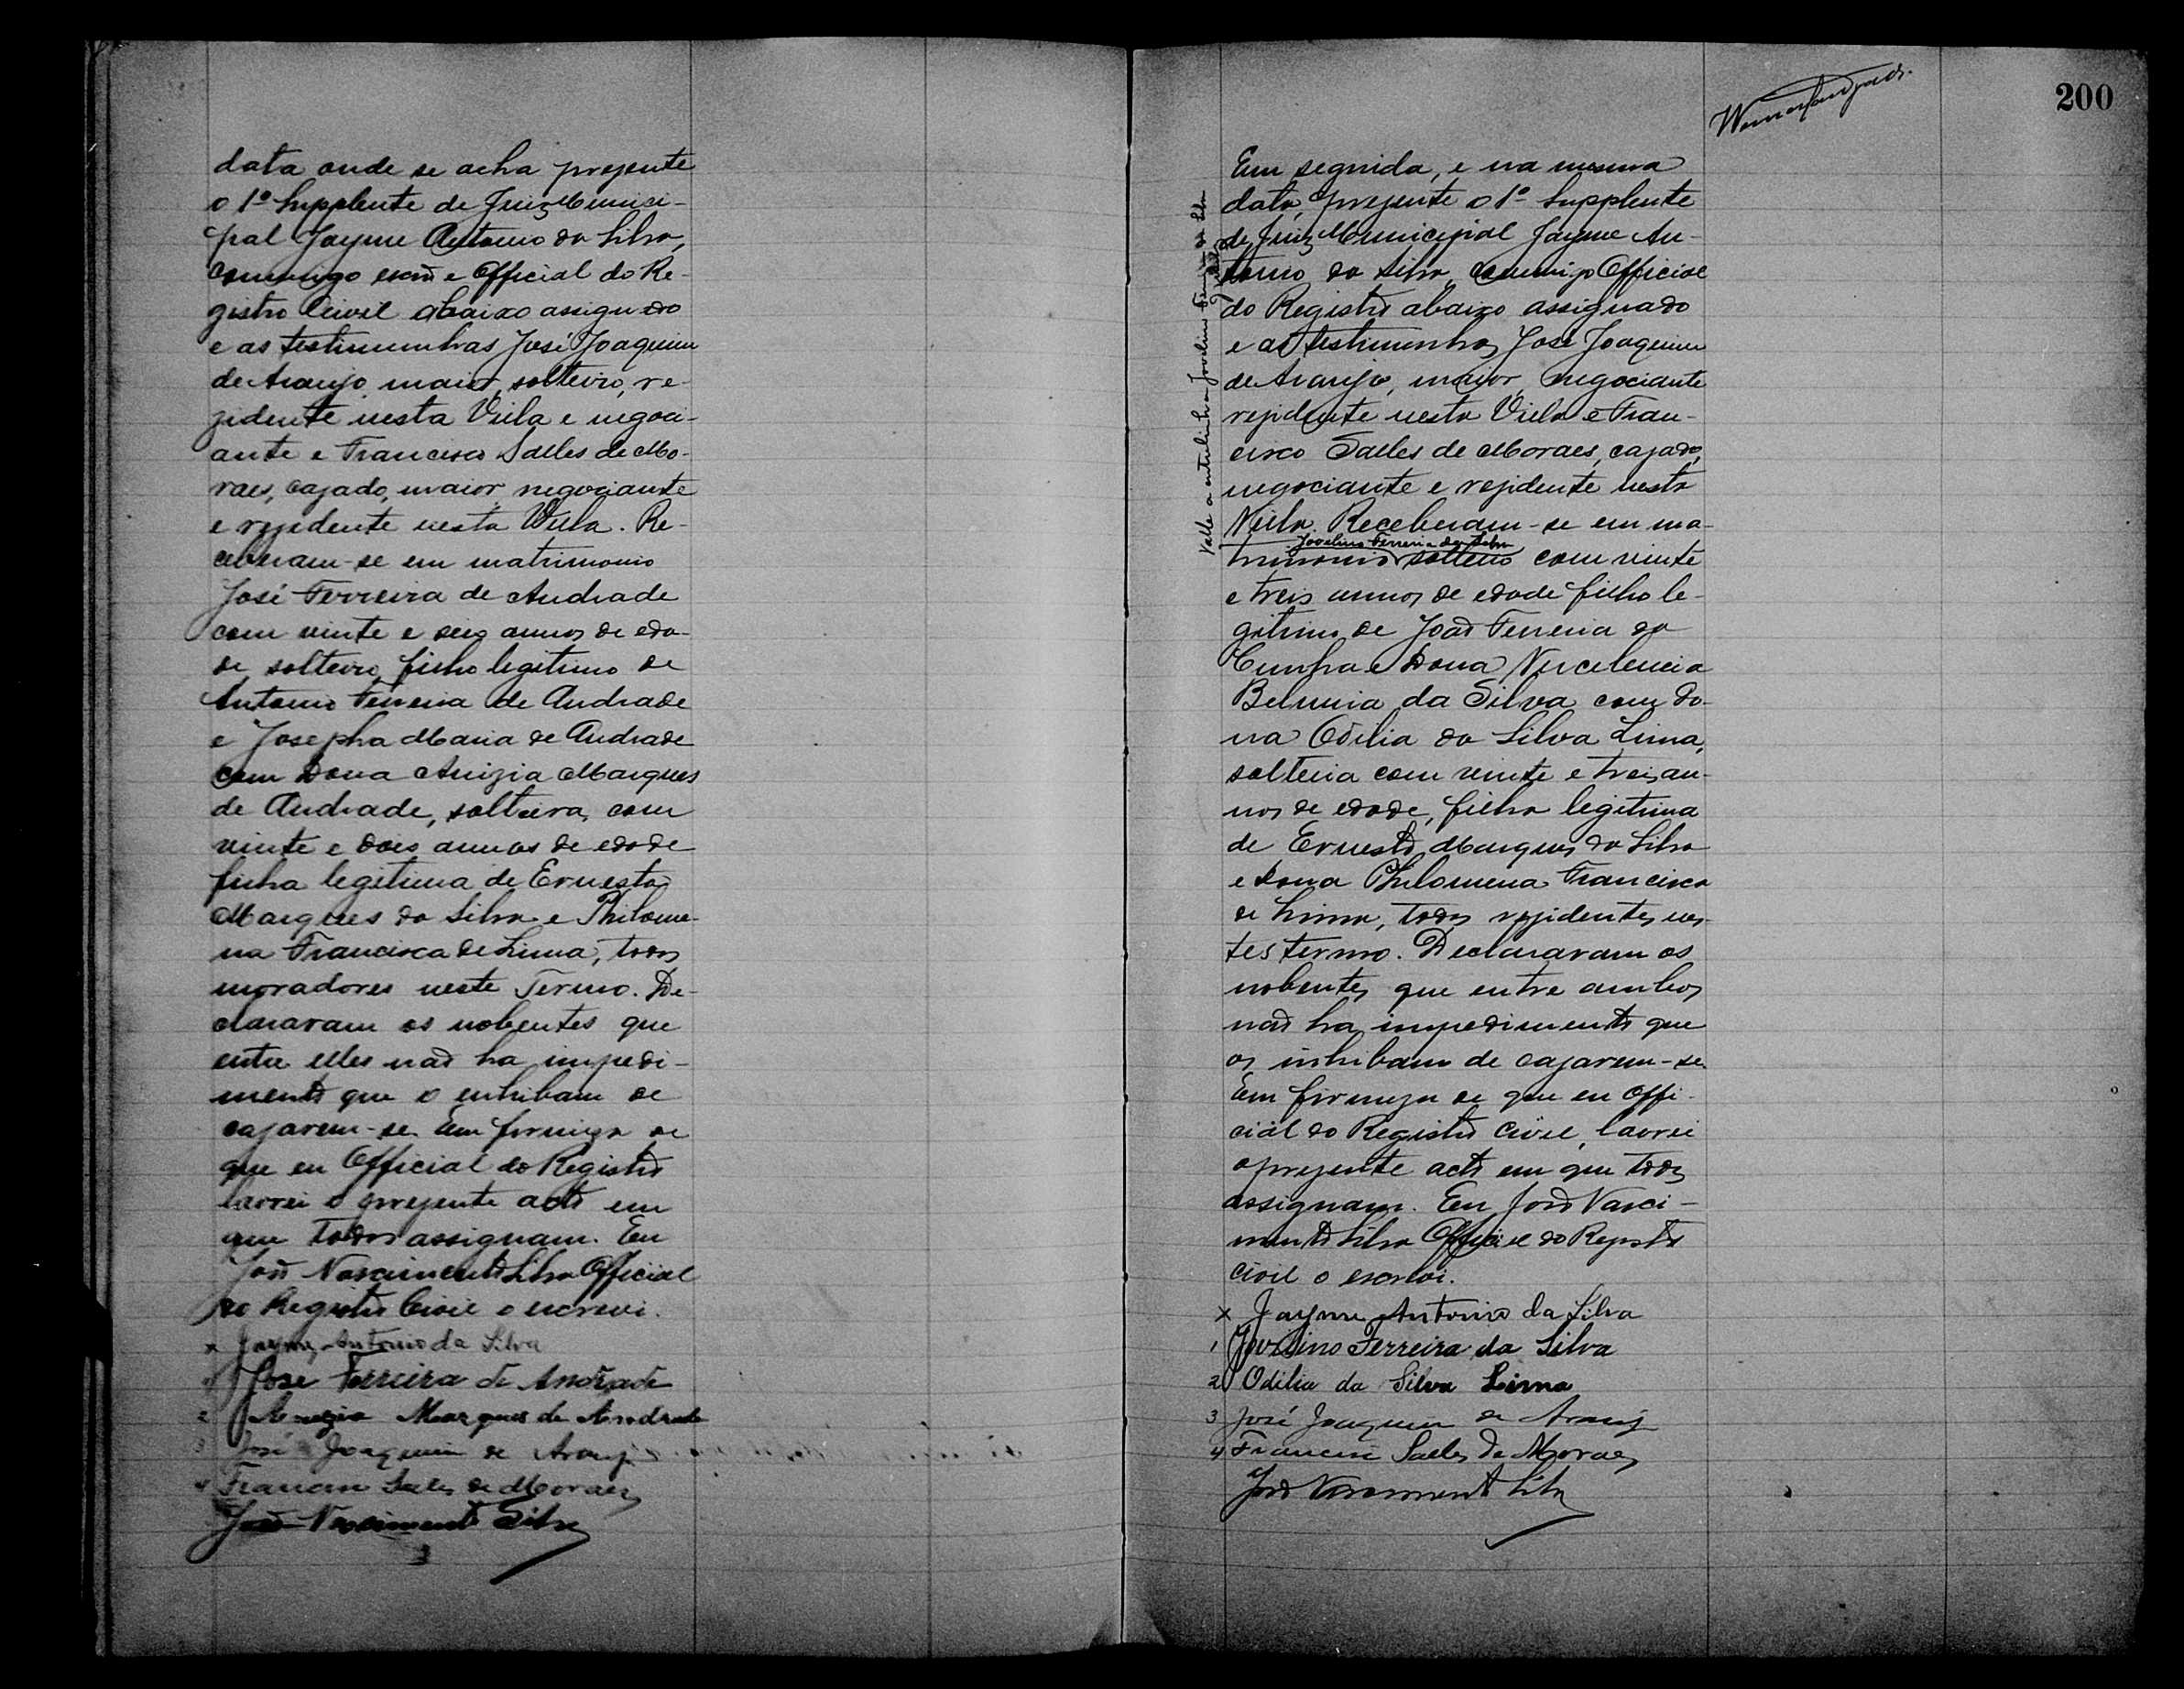 data onde se acha prezente
o 1º Supplente de Juiz Munici-
pal Jayme Antonio da Silva,
commigo escrm e Official do Re-
gistro Civil abaixo assignado
e as testimunhas José Joaquim
de Araujo, maior, solteiro, re-
zidente nesta Villa e negoci-
ante e Francisco Salles de Mo-
raes, cazado, maior, negociante
e rezidente nesta Villa. Re-
ceberam-se em matrimonio
José Ferreira de Andrade
com vinte e seis annos de eda-
de solteiro, filho legitimo de
Antonio Ferreira de Andrade
e Josepha Maria de Andrade
com Dona Anizia Marques
de Andrade, solteira, com
vinte e dois annos de edade
filha legitima de Ernesto
Marques da Silva e Philome-
na Francisca de Lima, todos
moradores neste Termo. De-
clararam os nobentes que
entre elles não ha impedi-
mento que o enhibam de
cazarem-se. Em firmeza de
que eu Official do Registro
lavrei o prezente acto em
que todos assignam. Eu
João Nascimento Silva Official
do Registro Civil o escrevi.
x Jayme Antonio da Silva
José Ferreira de Andrade
2 Anezia Marques de Andrade
3 José Joaquim de Araujo
4 Francisco Salles de Moraes
João Nascimento Silva
200
Em seguida, e na mesma
data, prezente o 1º Supplente
de Juiz Municipial Jayme An-
tonio da Silva, commigo Official
do Registro abaixo assignado
e as testimunhas José Joaquim
de Araujo, maior, negociante
rezidente nesta Villa e Fran-
cisco Salles de Moraes, cazado,
negociante e rezidente nesta
Villa. Receberam-se em ma-
Jovelino Ferreira da Silva
trimonio solteiro com vinte
e treis annos de edade filho le-
gitimo de João Ferreira da
Cunha e Dona
Belmia da Silva com Do-
na Odilia da Silva Lima,
solteira com vinte e treis an-
nos de edade, filha legitima
de Ernesto Marques da Silva
e Dona Philomena Francisca
de Lima, todos rezidentes nes-
tes termo. Declararam os
nobentes que entre ambos
não ha impedimento que
os inhibam de cazarem-se.
Em firmeza de que eu Offi-
cial do Registro Civil, lavrei
o prezente acto em que todos
assignam. Eu João Nasci-
mento Silva Official do Registro
civil o escrevi.
x Jayme Antonio da Silva
1 Jovilino Ferreira da Silva
2 Odilia da Silva Lima
3 José Joaquim de Araujo
4 Francisco Salles de Moraes
João Nascimento Silva
Valle a entrelinha Jovelino Ferreira da Silva